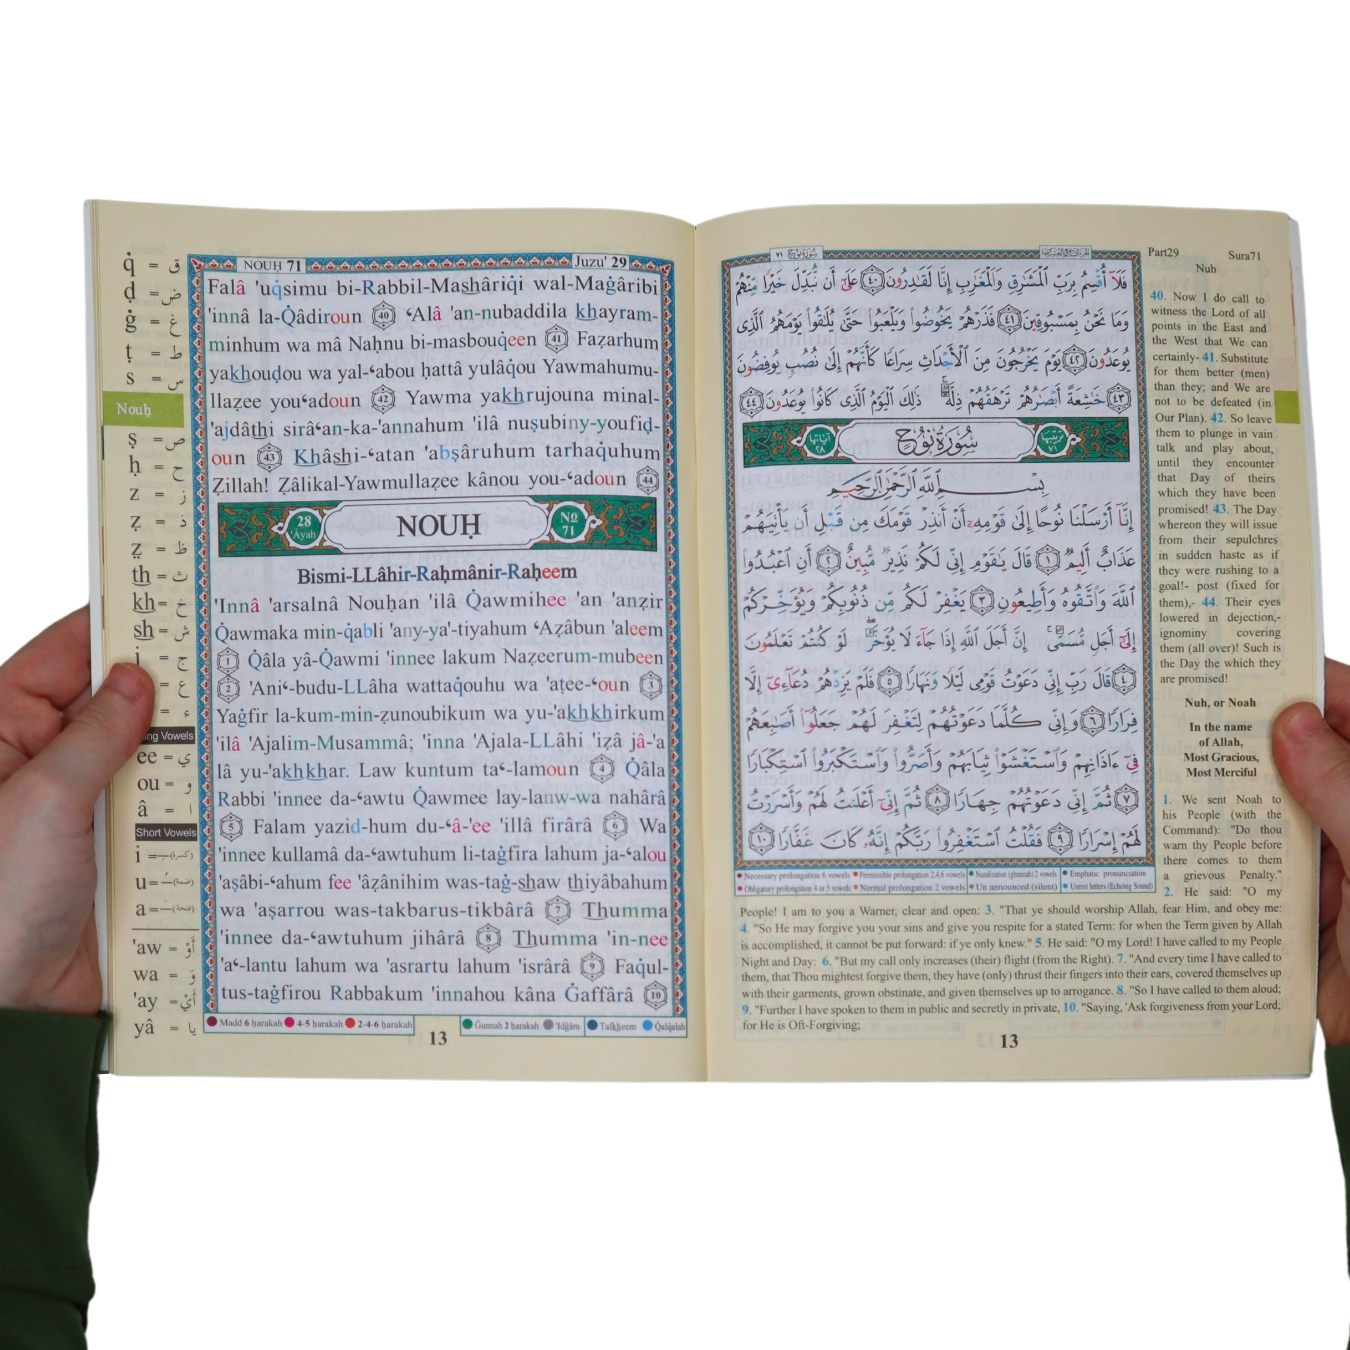 NOUḤ 71
Juzu' 29
Falâ 'uq̇simu bi-Rabbil-Mashâriq̇i wal-Maġâribi
'innâ la-Q̇âdiroun 40 ‘Alâ 'an-nubaddila khayram-
minhum wa mâ Naḥnu bi-masbouq̇een 41 Faẓarhum
yakhouḍou wa yal-‘abou ḥattâ yulâq̇ou Yawmahumu-
llaẓee you‘adoun 42 Yawma yakhrujouna minal-
'ajdâthi sirâ‘an-ka-'annahum 'ilâ nuṣubiny-youfiḍ-
oun 43 Khâshi-‘atan 'abṣâruhum tarhaq̇uhum
Ẓillah! Ẓâlikal-Yawmullaẓee kânou you-‘adoun 44
28 'Ayah
NOUḤ
No 71
Bismi-LLâhir-Raḥmânir-Raḥeem
'Innâ 'arsalnâ Nouḥan 'ilâ Q̇awmihee 'an 'anẓir
Q̇awmaka min-q̇abli 'any-ya'-tiyahum ‘Aẓâbun 'aleem
1 Q̇âla yâ-Q̇awmi 'innee lakum Naẓeerum-mubeen
2 'Ani‘-budu-LLâha wattaq̇ouhu wa 'aṭee-‘oun 3
Yaġfir la-kum-min-ẓunoubikum wa yu-'akhkhirkum
'ilâ 'Ajalim-Musammâ; 'inna 'Ajala-LLâhi 'iẓâ jâ-'a
lâ yu-'akhkhar. Law kuntum ta‘-lamoun 4 Q̇âla
Rabbi 'innee da-‘awtu Q̇awmee lay-lanw-wa nahârâ
5 Falam yazid-hum du-‘â-'ee 'illâ firârâ 6 Wa
'innee kullamâ da-‘awtuhum li-taġfira lahum ja-‘alou
'aṣâbi-‘ahum fee 'âẓânihim was-taġ-shaw thiyâbahum
wa 'aṣarrou was-takbarus-tikbârâ 7 Thumma
'innee da-‘awtuhum jihârâ 8 Thumma 'in-nee
'a‘-lantu lahum wa 'asrartu lahum 'isrârâ 9 Faq̇ul-
tus-taġfirou Rabbakum 'innahou kâna Ġaffârâ 10
Madd 6 ḥarakah 4-5 ḥarakah 2-4-6 ḥarakah
Ġunnah 2 ḥarakah 'Idġâm Tafkheem Q̇alq̇alah
13
q̇ = ق
ḍ = ض
ġ = غ
ṭ = ط
s = س
Nouḥ
ṣ = ص
ḥ = ح
z = ز
ẓ = ذ
ẓ̤ = ظ
th = ث
kh = خ
sh = ش
j = ج
= ع
= ء
ng Vowels
ee = ي
ou = و
â = ا
Short Vowels
i = (كسرة)
u = (ضمة)
a = (فتحة)
'aw = أَوْ
wa = وَ
'ay = أَيْ
yâ = يا
سُورَةُ نُوحٍ ٧١
فَلَآ أُقْسِمُ بِرَبِّ ٱلْمَشَٰرِقِ وَٱلْمَغَٰرِبِ إِنَّا لَقَٰدِرُونَ ٤٠ عَلَىٰٓ أَن نُّبَدِّلَ خَيْرًا مِّنْهُمْ
وَمَا نَحْنُ بِمَسْبُوقِينَ ٤١ فَذَرْهُمْ يَخُوضُوا۟ وَيَلْعَبُوا۟ حَتَّىٰ يُلَٰقُوا۟ يَوْمَهُمُ ٱلَّذِى
يُوعَدُونَ ٤٢ يَوْمَ يَخْرُجُونَ مِنَ ٱلْأَجْدَاثِ سِرَاعًا كَأَنَّهُمْ إِلَىٰ نُصُبٍ يُوفِضُونَ
٤٣ خَٰشِعَةً أَبْصَٰرُهُمْ تَرْهَقُهُمْ ذِلَّةٌ ۚ ذَٰلِكَ ٱلْيَوْمُ ٱلَّذِى كَانُوا۟ يُوعَدُونَ ٤٤
ترتيبها ٧١
سُورَةُ نُوحٍ
آياتها ٢٨
بِسْمِ ٱللَّهِ ٱلرَّحْمَٰنِ ٱلرَّحِيمِ
إِنَّآ أَرْسَلْنَا نُوحًا إِلَىٰ قَوْمِهِۦٓ أَنْ أَنذِرْ قَوْمَكَ مِن قَبْلِ أَن يَأْتِيَهُمْ
عَذَابٌ أَلِيمٌ ١ قَالَ يَٰقَوْمِ إِنِّى لَكُمْ نَذِيرٌ مُّبِينٌ ٢ أَنِ ٱعْبُدُوا۟
ٱللَّهَ وَٱتَّقُوهُ وَأَطِيعُونِ ٣ يَغْفِرْ لَكُم مِّن ذُنُوبِكُمْ وَيُؤَخِّرْكُمْ
إِلَىٰٓ أَجَلٍ مُّسَمًّى ۚ إِنَّ أَجَلَ ٱللَّهِ إِذَا جَآءَ لَا يُؤَخَّرُ ۖ لَوْ كُنتُمْ تَعْلَمُونَ
٤ قَالَ رَبِّ إِنِّى دَعَوْتُ قَوْمِى لَيْلًا وَنَهَارًا ٥ فَلَمْ يَزِدْهُمْ دُعَآءِىٓ إِلَّا
فِرَارًا ٦ وَإِنِّى كُلَّمَا دَعَوْتُهُمْ لِتَغْفِرَ لَهُمْ جَعَلُوٓا۟ أَصَٰبِعَهُمْ
فِىٓ ءَاذَانِهِمْ وَٱسْتَغْشَوْا۟ ثِيَابَهُمْ وَأَصَرُّوا۟ وَٱسْتَكْبَرُوا۟ ٱسْتِكْبَارًا
٧ ثُمَّ إِنِّى دَعَوْتُهُمْ جِهَارًا ٨ ثُمَّ إِنِّىٓ أَعْلَنتُ لَهُمْ وَأَسْرَرْتُ
لَهُمْ إِسْرَارًا ٩ فَقُلْتُ ٱسْتَغْفِرُوا۟ رَبَّكُمْ إِنَّهُۥ كَانَ غَفَّارًا ١٠
Necessary prolongation 6 vowels Permissible prolongation 2,4,6 vowels Nazalization (ghunnah) 2 vowels Emphatic pronunciation
Obligatory prolongation 4 or 5 vowels Normal prolongation 2 vowels Un announced (silent) Unrest letters (Echoing Sound)
Part29 Sura71
Nuh
40. Now I do call to
witness the Lord of all
points in the East and
the West that We can
certainly- 41. Substitute
for them better (men)
than they; and We are
not to be defeated (in
Our Plan). 42. So leave
them to plunge in vain
talk and play about,
until they encounter
that Day of theirs
which they have been
promised! 43. The Day
whereon they will issue
from their sepulchres
in sudden haste as if
they were rushing to a
goal!- post (fixed for
them),- 44. Their eyes
lowered in dejection,-
ignominy covering
them (all over)! Such is
the Day the which they
are promised!
Nuh, or Noah
In the name
of Allah,
Most Gracious,
Most Merciful
1. We sent Noah to
his People (with the
Command): "Do thou
warn thy People before
there comes to them
a grievous Penalty."
2. He said: "O my
People! I am to you a Warner, clear and open: 3. "That ye should worship Allah, fear Him, and obey me:
4. "So He may forgive you your sins and give you respite for a stated Term: for when the Term given by Allah
is accomplished, it cannot be put forward: if ye only knew." 5. He said: "O my Lord! I have called to my People
Night and Day: 6. "But my call only increases (their) flight (from the Right). 7. "And every time I have called to
them, that Thou mightest forgive them, they have (only) thrust their fingers into their ears, covered themselves up
with their garments, grown obstinate, and given themselves up to arrogance. 8. "So I have called to them aloud;
9. "Further I have spoken to them in public and secretly in private, 10. "Saying, 'Ask forgiveness from your Lord;
for He is Oft-Forgiving;
13